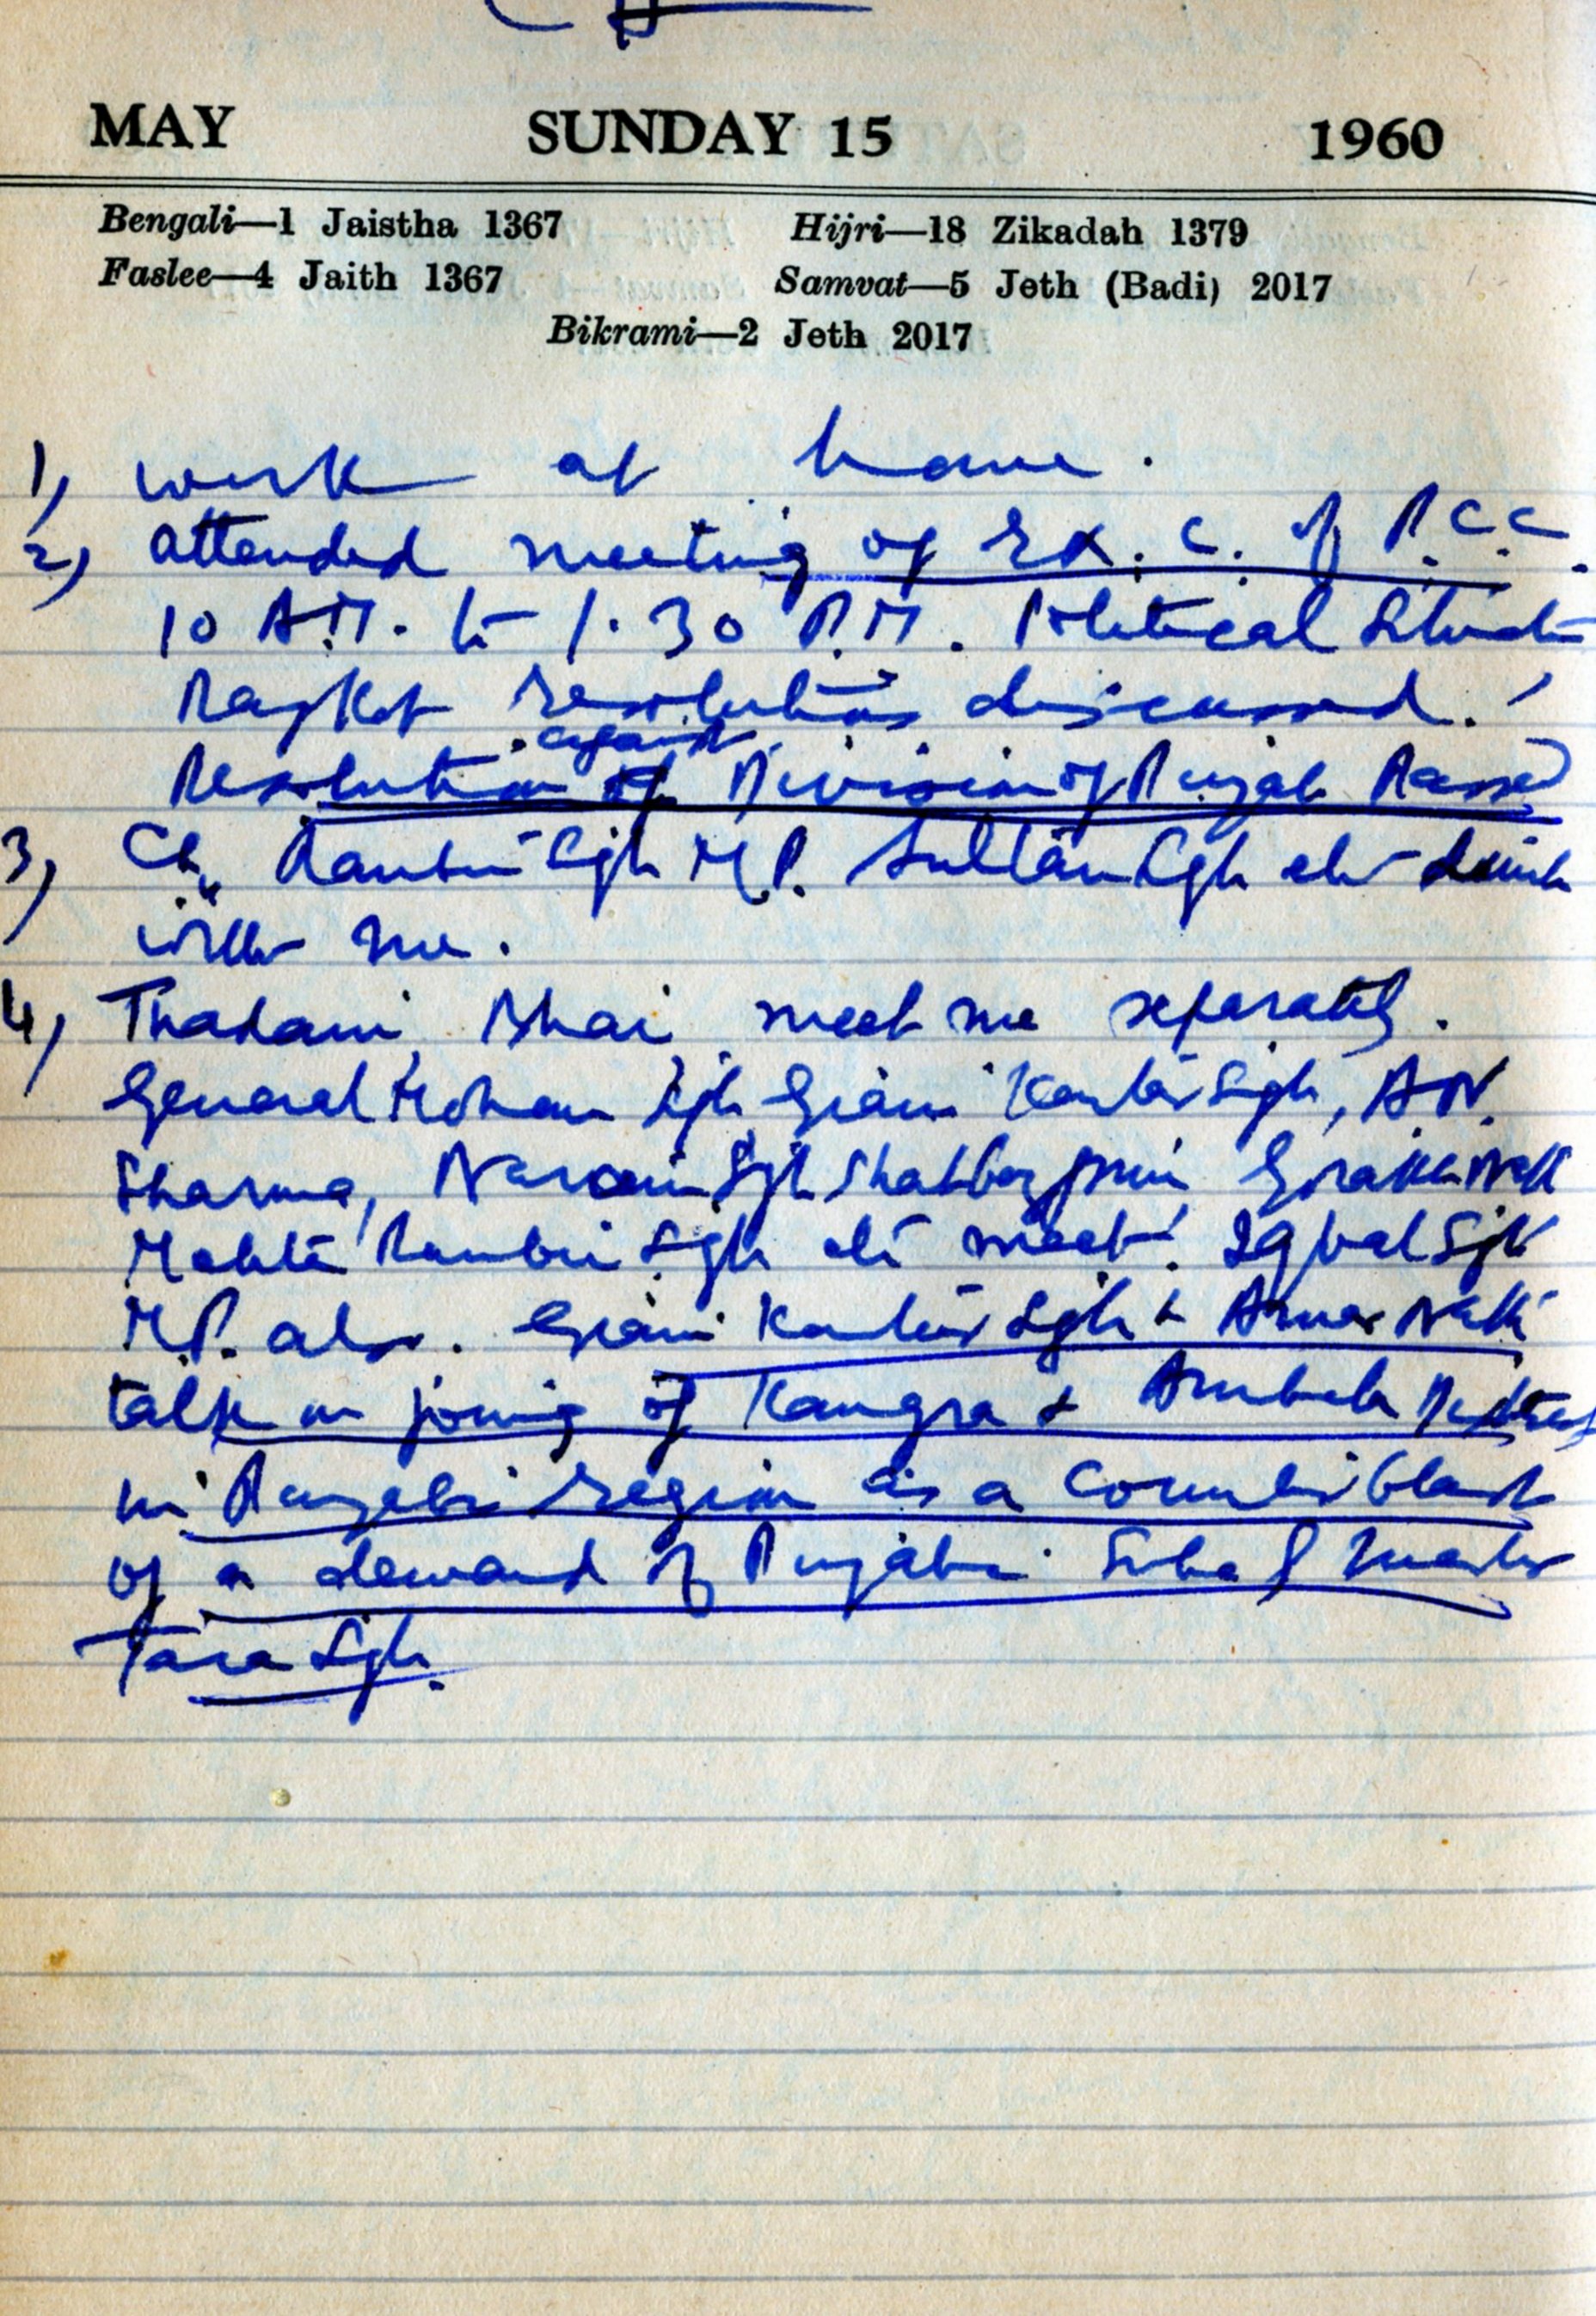 MAY SUNDAY 15 1960
Bengali—1 Jaistha 1367 Hijri—18 Zikadah 1379
Faslee—4 Jaith 1367 Samvat—5 Jeth (Badi) 2017
Bikrami—2 Jeth 2017
1) work at home.
2) attended meeting of Ex. C. of P.C.C.
10 A.M. to 1.30 P.M. Political
resolutions discussed.
against
Resolution of Division of Punjab Passed
3) Ch. Ranbir Sgh M.P. Sultan Sgh etc
with me.
4) Thadani, Bhai, meet me separately.
General Mohan Sgh Giani Kartar Singh, A.N.
Sharma, Narain Sgh Shahbazpuri Gorakh Nath
Mehta Ranbir Sgh etc meet. Iqbal Sgh
M.P. also. Giani Kartar Sgh & Amar Nath
talk on joing of Kangra & Ambala
in Punjabi region as a counter blast
of a demand of Punjabi Suba of Master
Tara Sgh.